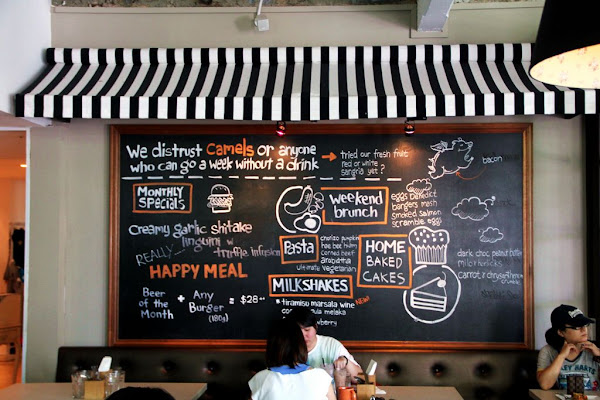 We distrust Camels or anyone
who can go a week without a drink
tried our fresh fruit
red or white
sangria yet?
bacon
MONTHLY
SPECIALS
Creamy garlic shitake
linguini w/
REALLY truffle infusion
HAPPY MEAL
Beer
of the
Month
+ Any
Burger
(180g)
= $28
Weekend
brunch
eggs benedict
bangers mash
smoked salmon
scramble eggs
Pasta
chorizo pumpkin
corned beef
arrabiata
ultimate vegetarian
HOME
BAKED
CAKES
dark choc peanut butter
carrot
MILKSHAKES
+ tiramisu marsala wine
NEW!
melaka